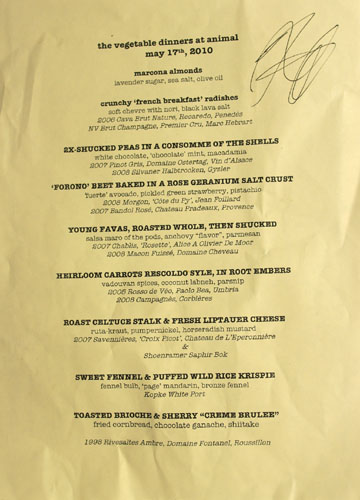 the vegetable dinners at animal
may 17th, 2010
marcona almonds
lavender sugar, sea salt, olive oil
crunchy 'french breakfast' radishes
soft chevre with nori, black lava salt
2006 Cava Brut Nature, Recaredo, Penedès
NV Brut Champagne, Premier Cru, Marc Hebrart
2X-SHUCKED PEAS IN A CONSOMME OF THE SHELLS
white chocolate, 'chocolate' mint, macadamia
2007 Pinot Gris, Domaine Ostertag, Vin d'Alsace
2008 Silvaner Halbtrocken, Gysler
'FORONO' BEET BAKED IN A ROSE GERANIUM SALT CRUST
'fuerte' avocado, pickled green strawberry, pistachio
2008 Morgon, 'Côte du Py', Jean Foillard
2007 Bandol Rosé, Chateau Pradeaux, Provence
YOUNG FAVAS, ROASTED WHOLE, THEN SHUCKED
salsa maro of the pods, anchovy "flavor", parmesan
2007 Chablis, 'Rosette', Alice & Olivier De Moor
2008 Macon Fuissé, Domaine Cheveau
HEIRLOOM CARROTS RESCOLDO SYLE, IN ROOT EMBERS
vadouvan spices, coconut labneh, parsnip
2006 Rosso de Véo, Paolo Bea, Umbria
2008 Campagnès, Corbières
ROAST CELTUCE STALK & FRESH LIPTAUER CHEESE
ruta-kraut, pumpernickel, horseradish mustard
2007 Savennières, 'Croix Picot', Chateau de L'Eperonnière
&
Shoenramer Saphir Bok
SWEET FENNEL & PUFFED WILD RICE KRISPIE
fennel bulb, 'page' mandarin, bronze fennel
Kopke White Port
TOASTED BRIOCHE & SHERRY "CREME BRULEE"
fried cornbread, chocolate ganache, shiitake
1998 Rivesaltes Ambre, Domaine Fontanel, Roussillon